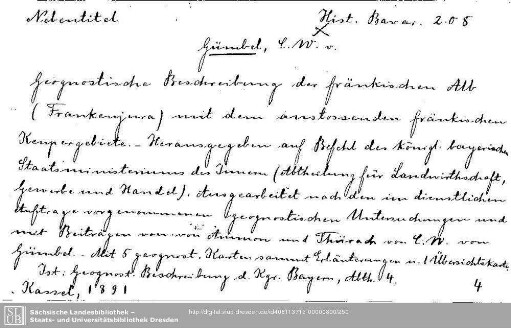 Nebentitel
Hist. Bavar. 208
Gümbel, C. W. v.
Geognostische Beschreibung der fränkischen Alb
(Frankenjura) mit dem anstossenden fränkischen
Keupergebiete. - Herausgegeben auf Befehl des königl. bayerischen
Staatsministeriums des Innern (Abtheilung für Landwirthschaft,
Gewerbe und Handel). Ausgearbeitet nach den im dienstlichen
Auftrage vorgenommenen geognostischen Untersuchungen und
mit Beiträgen von von Ammon und Thürach von C. W. von
Gümbel. - Mit 5 geognost. Karten sammt Erläuterungen u. 1 Übersichtskarte.
Ist: Geognost. Beschreibung d. Kgr. Bayern, Abth. 4.
4
Kassel, 1891
SLUB
Sächsische Landesbibliothek –
Staats- und Universitätsbibliothek Dresden